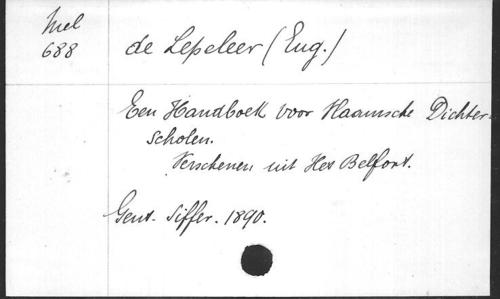 Mel
688
de Lepeleer (Eug.)
Een Handboek voor Vlaamsche Dichter-
scholen.
Verschenen uit Het Belfort.
Gent. Siffer. 1890.